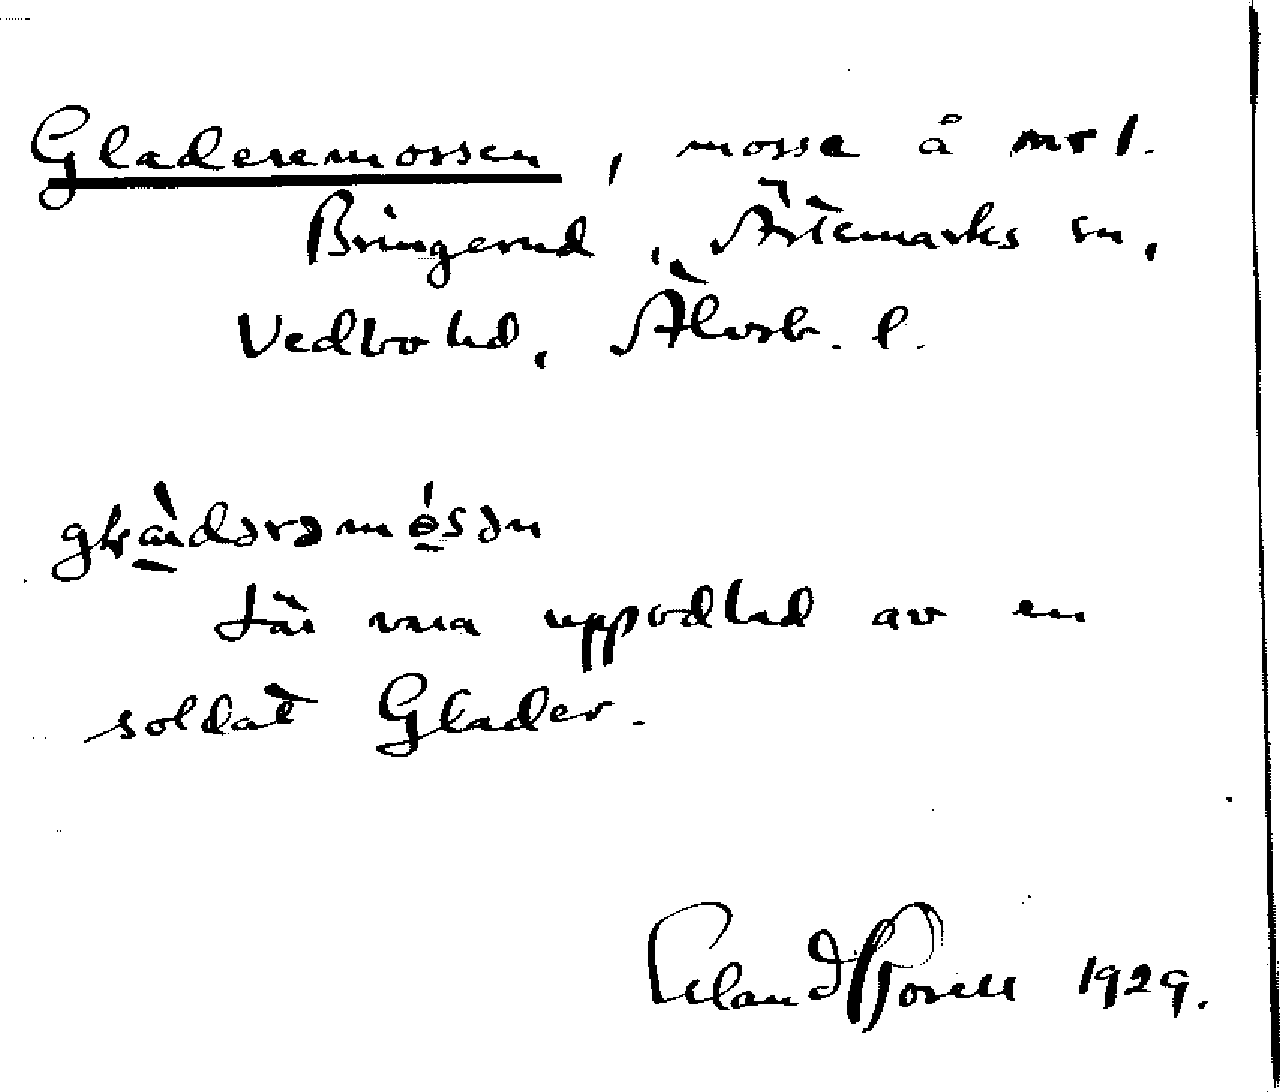 Gladeremossen, mosse å mtl.
Bringerud, Ärtemarks sn,
Vedbo hd, Älvsb. l.
glàdərəmósən
Lär vara uppodlad av en
soldat Glader.
Erland Rosell 1929.